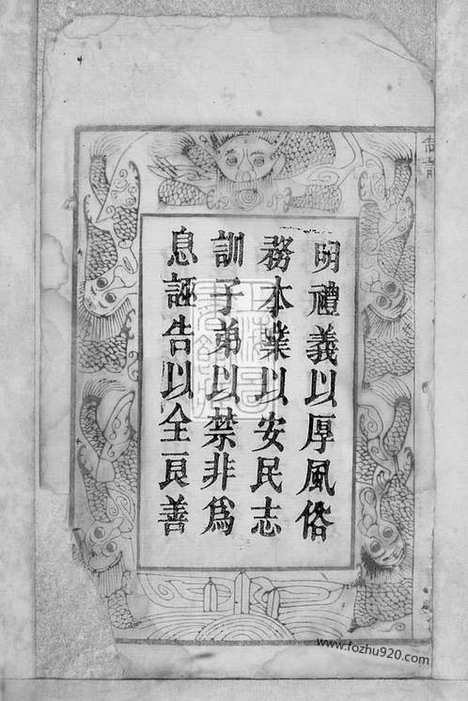 明禮義以厚風俗
務本業以安民志
訓子弟以禁非為
息誣告以全良善
www.fozhu920.com